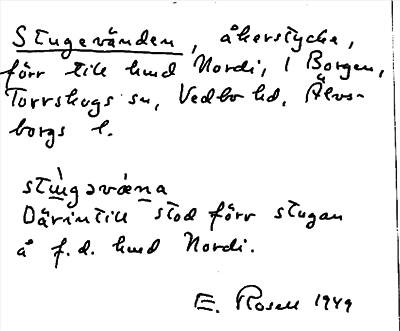 Stugevänden, åkerstycke,
förr till hmd Nordi, i Borgen,
Torrskogs sn, Vedbo hd, Älvs-
borgs l.
stɯ̀gəvæna
Därintill stod förr stugan
å f.d. hmd Nordi.
E. Rosell 1949